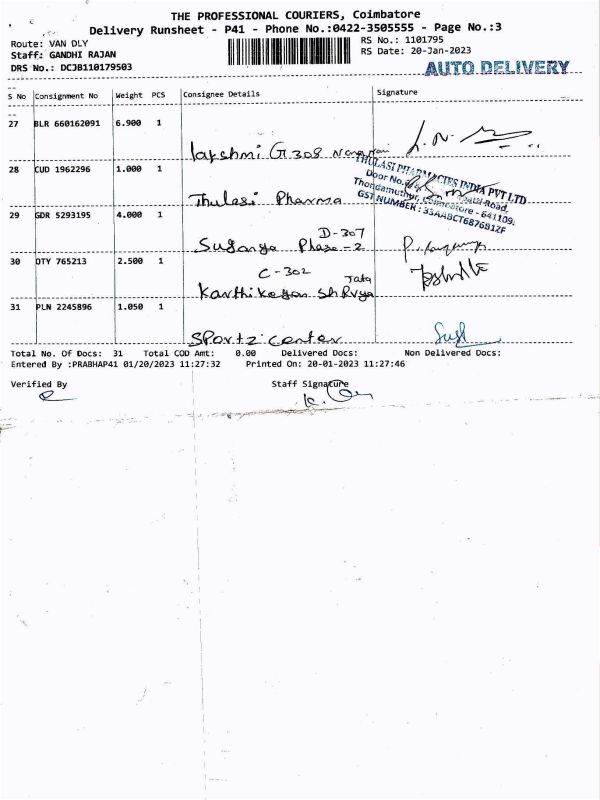 THE PROFESSIONAL COURIERS, Coimbatore
Delivery Runsheet - P41 - Phone No.:0422-3505555 - Page No.:3
Route: VAN DLY
RS No.: 1101795
Staff: GANDHI RAJAN
RS Date: 20-Jan-2023
DRS No.: DCJB110179503
AUTO DELIVERY
S No Consignment No Weight PCS Consignee Details Signature
27 BLR 660162091 6.900 1
Lakshmi G 308
28 CUD 1962296 1.000 1
Thulasi Pharma
THULASI PHARMACIES INDIA PVT LTD
Door No.
Road,
Thondamuthur, Coimbatore - 641109.
GST NUMBER : 33AABCT6876B1ZF
29 GDR 5293195 4.000 1
D-307
Suganya Phase-2
30 OTY 765213 2.500 1
C-302 Tata
Karthikeyan ShRvya
31 PLN 2245896 1.050 1
SPortz center
Total No. Of Docs: 31 Total COD Amt: 0.00 Delivered Docs: Non Delivered Docs:
Entered By :PRABHAP41 01/20/2023 11:27:32 Printed On: 20-01-2023 11:27:46
Verified By Staff Signature